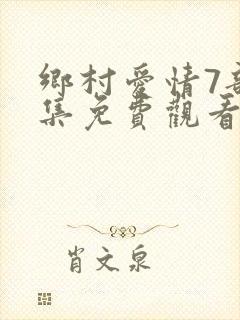 鄉村愛情7
集免費觀看
肖文泉